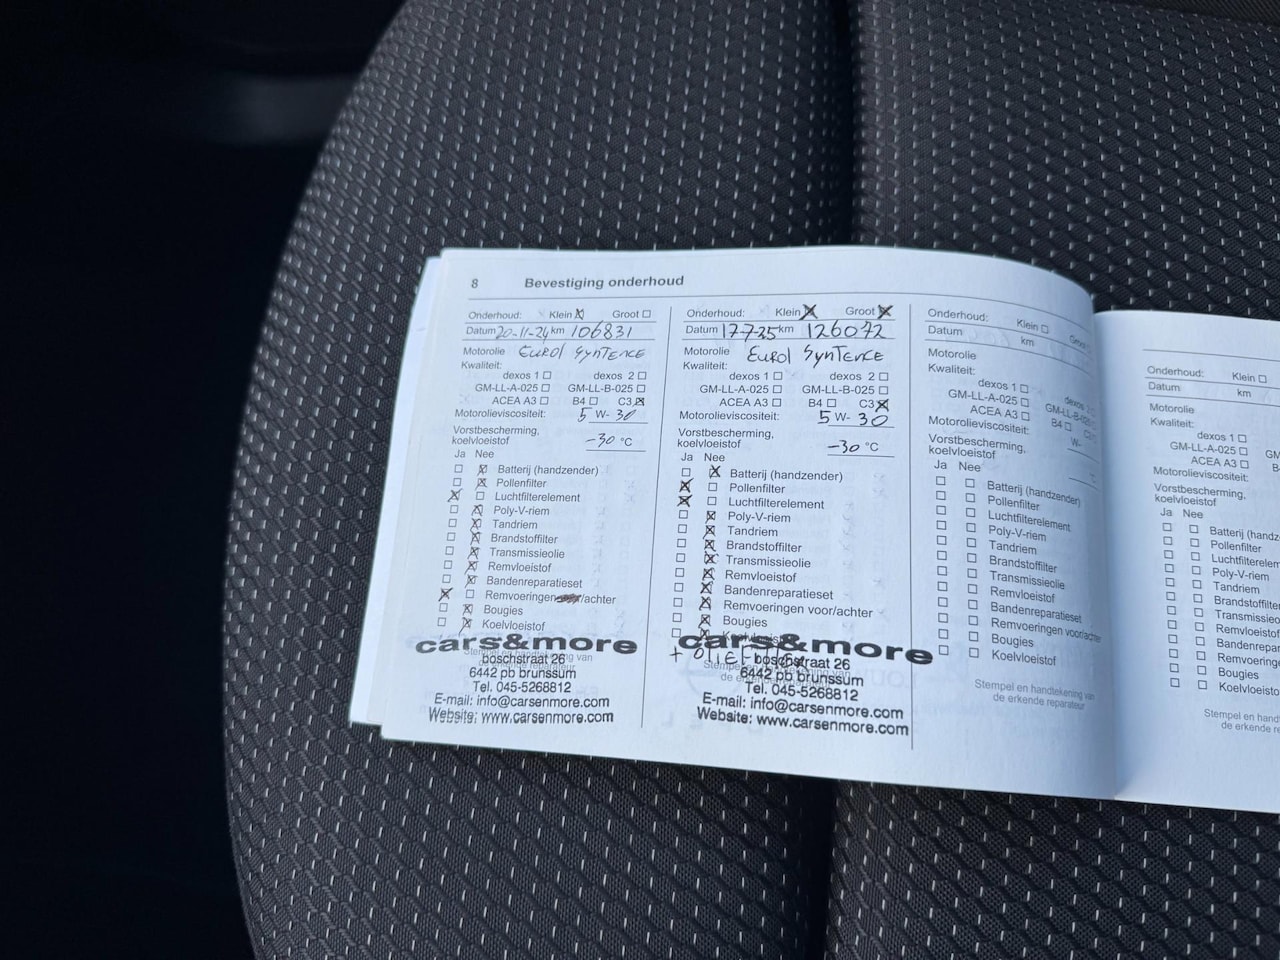 8 Bevestiging onderhoud
Onderhoud: Klein ☒ Groot ☐
Datum 20-11-24 km 106831
Motorolie EUROL SYNTENCE
Kwaliteit:
dexos 1 ☐ dexos 2 ☐
GM-LL-A-025 ☐ GM-LL-B-025 ☐
ACEA A3 ☐ B4 ☐ C3 ☒
Motorolieviscositeit: 5 W- 30
Vorstbescherming,
koelvloeistof -30 °C
Ja Nee
☐ ☒ Batterij (handzender)
☐ ☒ Pollenfilter
☒ ☐ Luchtfilterelement
☐ ☒ Poly-V-riem
☐ ☒ Tandriem
☐ ☒ Brandstoffilter
☐ ☒ Transmissieolie
☐ ☒ Remvloeistof
☐ ☒ Bandenreparatieset
☒ ☐ Remvoeringen /achter
☐ ☒ Bougies
☐ ☒ Koelvloeistof
cars&more
boschstraat 26
6442 pb brunssum
Tel. 045-5268812
E-mail: info@carsenmore.com
Website: www.carsenmore.com
Onderhoud: Klein ☒ Groot ☒
Datum 17-7-25 km 126072
Motorolie EUROL SYNTENCE
Kwaliteit:
dexos 1 ☐ dexos 2 ☐
GM-LL-A-025 ☐ GM-LL-B-025 ☐
ACEA A3 ☐ B4 ☐ C3 ☒
Motorolieviscositeit: 5 W- 30
Vorstbescherming,
koelvloeistof -30 °C
Ja Nee
☐ ☒ Batterij (handzender)
☒ ☐ Pollenfilter
☒ ☐ Luchtfilterelement
☐ ☒ Poly-V-riem
☐ ☒ Tandriem
☐ ☒ Brandstoffilter
☐ ☒ Transmissieolie
☐ ☒ Remvloeistof
☐ ☒ Bandenreparatieset
☐ ☒ Remvoeringen voor/achter
☐ ☒ Bougies
☐ ☒ Koelvloeistof
+ OLIEFILTER
cars&more
boschstraat 26
6442 pb brunssum
Tel. 045-5268812
E-mail: info@carsenmore.com
Website: www.carsenmore.com
Onderhoud: Klein ☐ Groot
Datum km
Motorolie
Kwaliteit:
dexos 1 ☐ dexos 2
GM-LL-A-025 ☐ GM-LL-B-025
ACEA A3 ☐ B4 ☐ C3
Motorolieviscositeit: W-
Vorstbescherming,
koelvloeistof °C
Ja Nee
☐ ☐ Batterij (handzender)
☐ ☐ Pollenfilter
☐ ☐ Luchtfilterelement
☐ ☐ Poly-V-riem
☐ ☐ Tandriem
☐ ☐ Brandstoffilter
☐ ☐ Transmissieolie
☐ ☐ Remvloeistof
☐ ☐ Bandenreparatieset
☐ ☐ Remvoeringen voor/achter
☐ ☐ Bougies
☐ ☐ Koelvloeistof
Stempel en handtekening van
de erkende reparateur
Onderhoud: Klein ☐
Datum km
Motorolie
Kwaliteit:
dexos 1 ☐
GM-LL-A-025 ☐ GM-
ACEA A3 ☐ B4
Motorolieviscositeit:
Vorstbescherming,
koelvloeistof
Ja Nee
☐ ☐ Batterij (handz
☐ ☐ Pollenfilter
☐ ☐ Luchtfilterelem
☐ ☐ Poly-V-riem
☐ ☐ Tandriem
☐ ☐ Brandstoffilter
☐ ☐ Transmissieo
☐ ☐ Remvloeistof
☐ ☐ Bandenrepar
☐ ☐ Remvoeringe
☐ ☐ Bougies
☐ ☐ Koelvloeistof
Stempel en hand
de erkende re